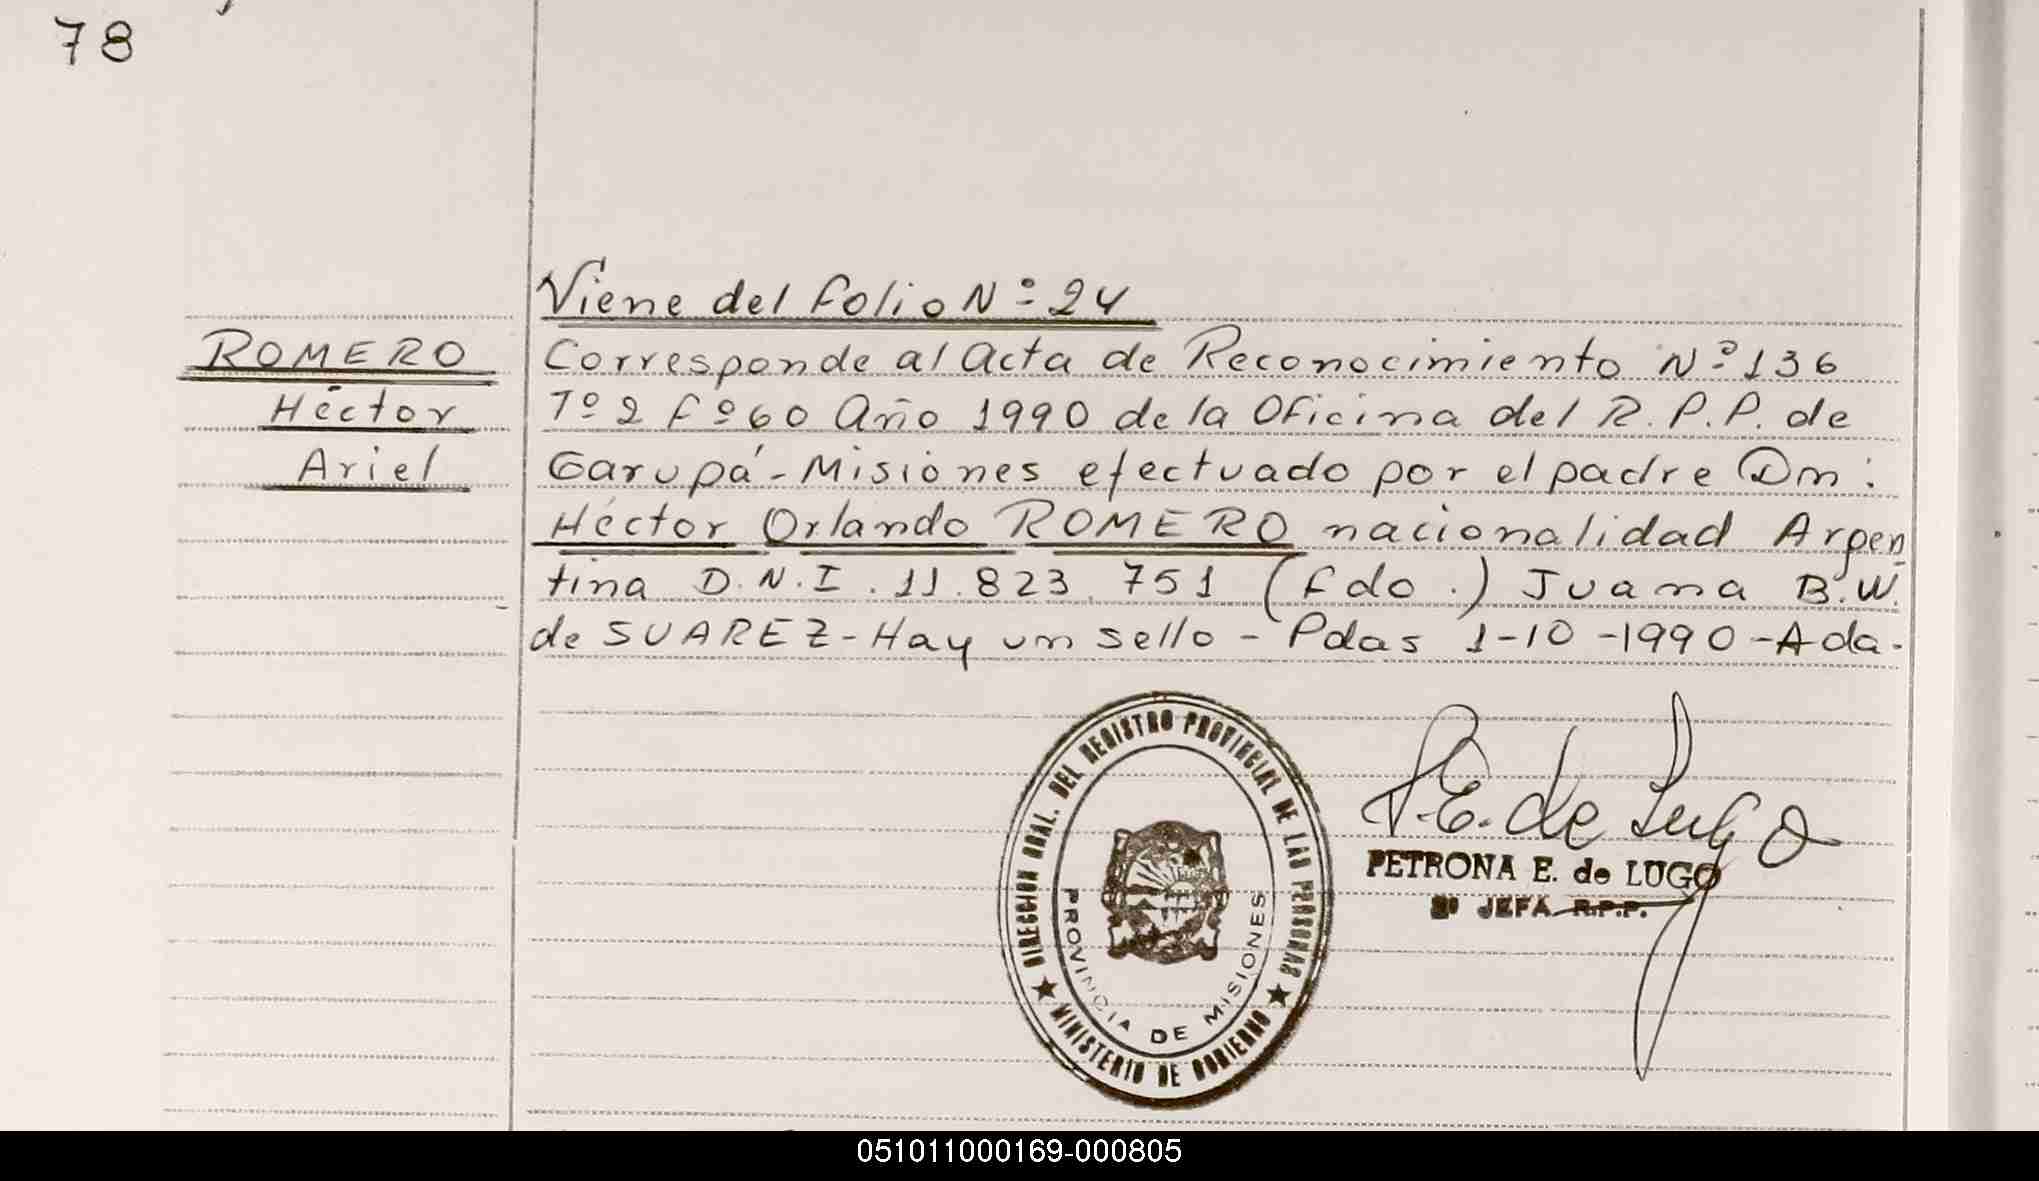 78
Viene del folio Nº 24
ROMERO
Héctor
Ariel
Corresponde al Acta de Reconocimiento Nº 136
Tº 2 Fº 60 Año 1990 de la Oficina del R.P.P. de
Garupá - Misiones efectuado por el padre Dn:
Héctor Orlando ROMERO nacionalidad Argen
tina D.N.I. 11.823.751 (fdo.) Juana B.W.
de SUAREZ - Hay un sello - Pdas 1-10-1990 - Ada.
DIRECCION GRAL. DEL REGISTRO PROVINCIAL DE LAS PERSONAS
MINISTERIO DE GOBIERNO
PROVINCIA DE MISIONES
P.E. de Lugo
PETRONA E. de LUGO
JEFA R.P.P.
051011000169-000805